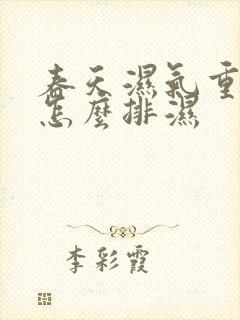 春天濕氣重
怎麼排濕
李彩霞